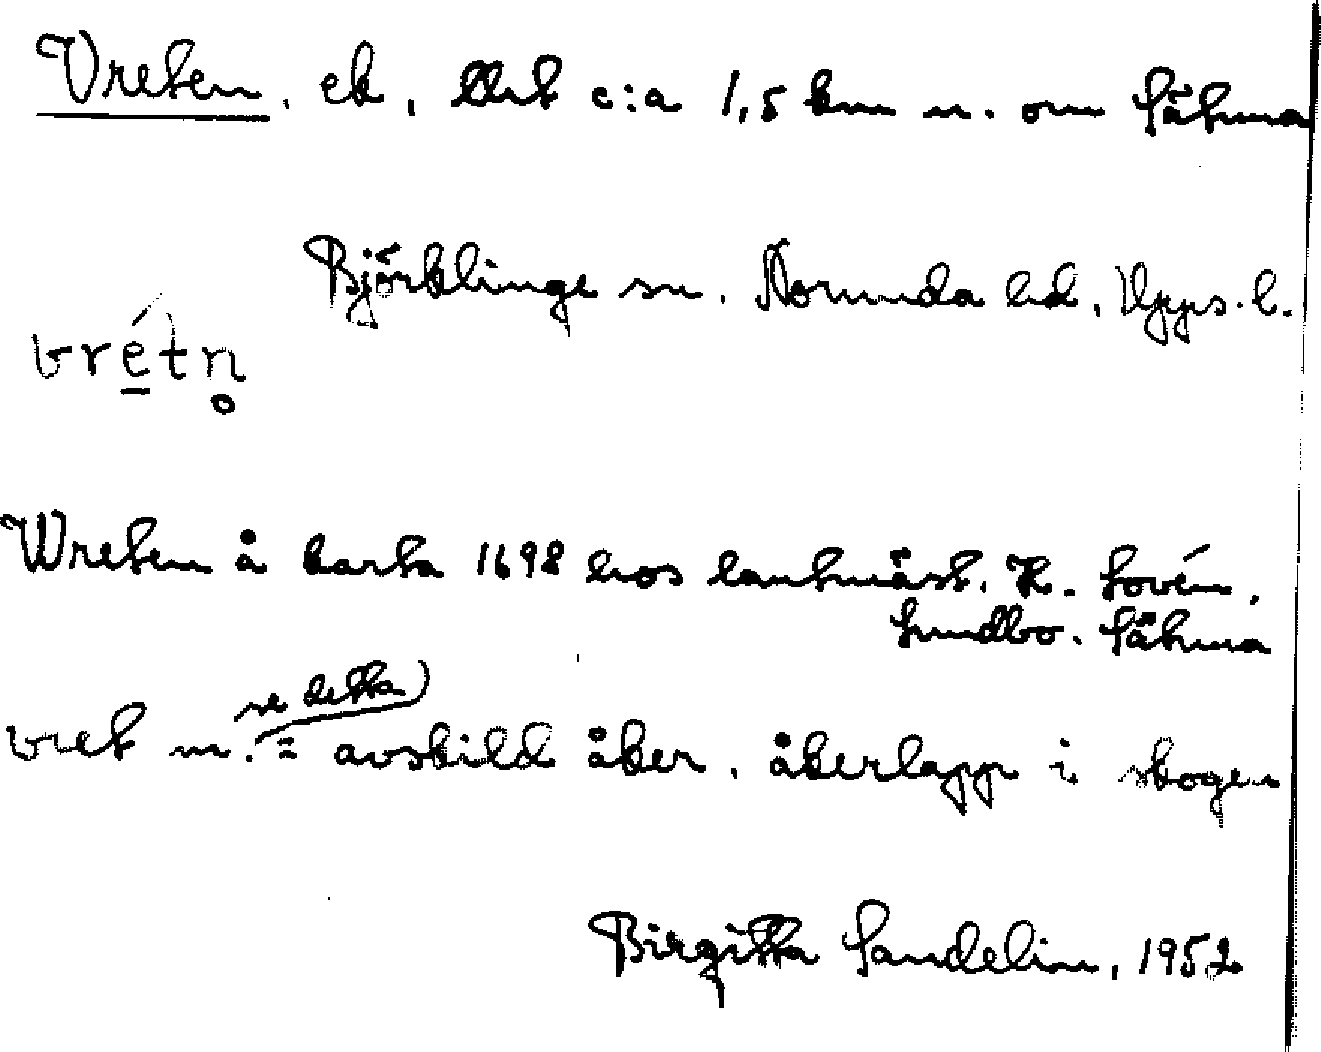 Vreten, ek, litet c:a 1,5 km n. om Sätuna
Björklinge sn. Norunda hd, Upps. l.
vrétn̥
Wreten å karta 1698 hos lantmäst. K. Lovén,
Lundbo. Sätuna
se detta)
vret m. = avskild åker, åkerlapp i skogen
Birgitta Sandelin, 1952